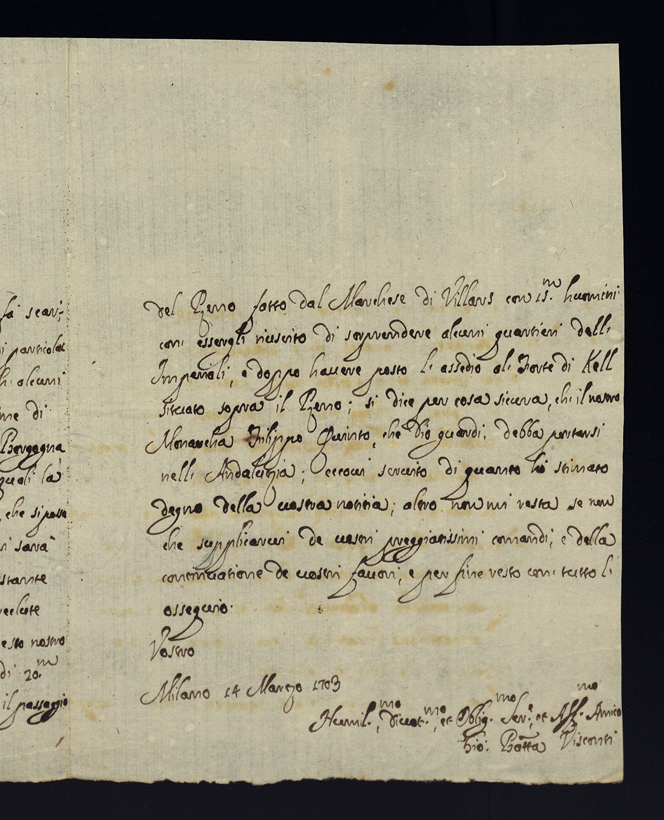 fà scari=
i particolar
hi alcuni
me di
Borgogna
quali la
, che si posse
ri sarà
stante
recleute
esto nostro
di 20.m
il passaggio
del Reno fatto dal Marchese di Villars con 15.m huomini
con essergli riuscito di sorprendere alcuni quartieri delli
Imperiali, e doppo havere posto l'assedio al Forte di Kell
situato sopra il Reno; si dice per cosa sicura, che il nostro
Monarcha Filippo Quinto, che Dio guardi, debba portarsi
nell'Andaluzia; eccovi servito di quanto hò stimato
degno della vostra notitia; altro non mi resta se non
che supplicarvi de vostri preggiatissimi comandi, e della
continuatione de vostri favori, e per fine resto con tutto l'
ossequio.
Vostro
Milano 14 Marzo 1703
Humil.mo, Divot.mo, et Oblig.mo Ser.e, et Aff.mo Amico
Gio: Batta Visconti